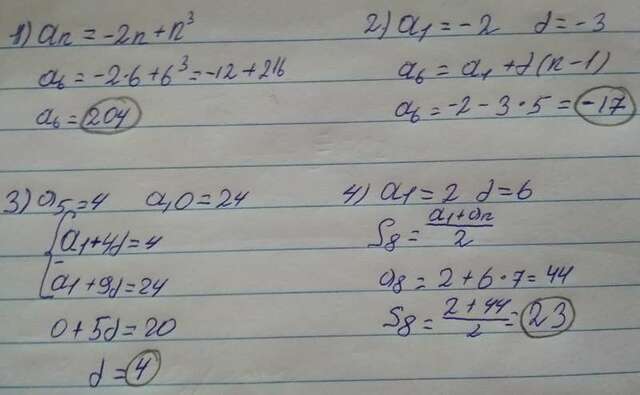 1) aₙ = -2n + n³
a₆ = -2·6 + 6³ = -12 + 216
a₆ = 204
2) a₁ = -2 d = -3
a₆ = a₁ + d(n-1)
a₆ = -2 - 3·5 = -17
3) a₅ = 4 a,0 = 24
{a₁ + 4d = 4
a₁ + 9d = 24
0 + 5d = 20
d = 4
4) a₁ = 2 d = 6
S₈ = (a₁ + aₙ)/2
a₈ = 2 + 6·7 = 44
S₈ = (2 + 44)/2 = 23